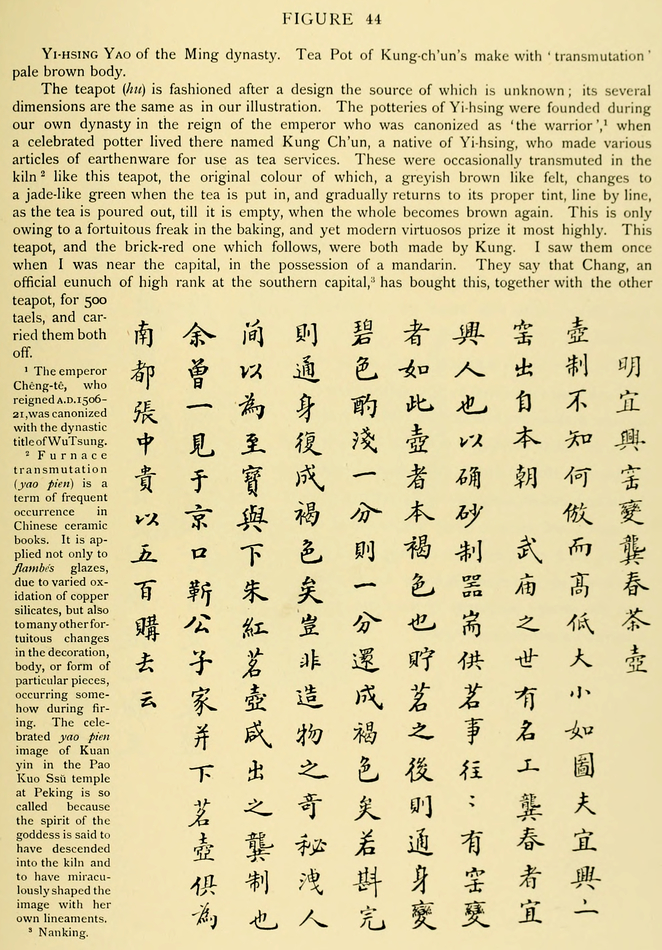 FIGURE 44
YI-HSING YAO of the Ming dynasty. Tea Pot of Kung-ch'un's make with 'transmutation'
pale brown body.
The teapot (hu) is fashioned after a design the source of which is unknown; its several
dimensions are the same as in our illustration. The potteries of Yi-hsing were founded during
our own dynasty in the reign of the emperor who was canonized as 'the warrior',¹ when
a celebrated potter lived there named Kung Ch'un, a native of Yi-hsing, who made various
articles of earthenware for use as tea services. These were occasionally transmuted in the
kiln² like this teapot, the original colour of which, a greyish brown like felt, changes to
a jade-like green when the tea is put in, and gradually returns to its proper tint, line by line,
as the tea is poured out, till it is empty, when the whole becomes brown again. This is only
owing to a fortuitous freak in the baking, and yet modern virtuosos prize it most highly. This
teapot, and the brick-red one which follows, were both made by Kung. I saw them once
when I was near the capital, in the possession of a mandarin. They say that Chang, an
official eunuch of high rank at the southern capital,³ has bought this, together with the other
teapot, for 500
taels, and car-
ried them both
off.
¹ The emperor
Chêng-tê, who
reigned A.D. 1506-
21, was canonized
with the dynastic
title of Wu Tsung.
² Furnace
transmutation
(yao pien) is a
term of frequent
occurrence in
Chinese ceramic
books. It is ap-
plied not only to
flambés glazes,
due to varied ox-
idation of copper
silicates, but also
to many other for-
tuitous changes
in the decoration,
body, or form of
particular pieces,
occurring some-
how during fir-
ing. The cele-
brated yao pien
image of Kuan
yin in the Pao
Kuo Ssŭ temple
at Peking is so
called because
the spirit of the
goddess is said to
have descended
into the kiln and
to have miracu-
lously shaped the
image with her
own lineaments.
³ Nanking.
明宜興窑變龔春茶壺
壺制不知何倣而髙低大小如圖夫宜興一
窑出自本朝 武庙之世有名工龔春者宜
興人也以硇砂制噐耑供茗事往〻有窑變
者如此壺者本褐色也貯茗之後則通身變
碧色酌淺一分則一分還成褐色矣若斟完
則通身復成褐色矣豈非造物之奇秘洩人
间以為至寳與下朱紅茗壺咸出之龔制也
余曾一見于京口靳公子家并下茗壺俱為
南都張中貴以五百購去云